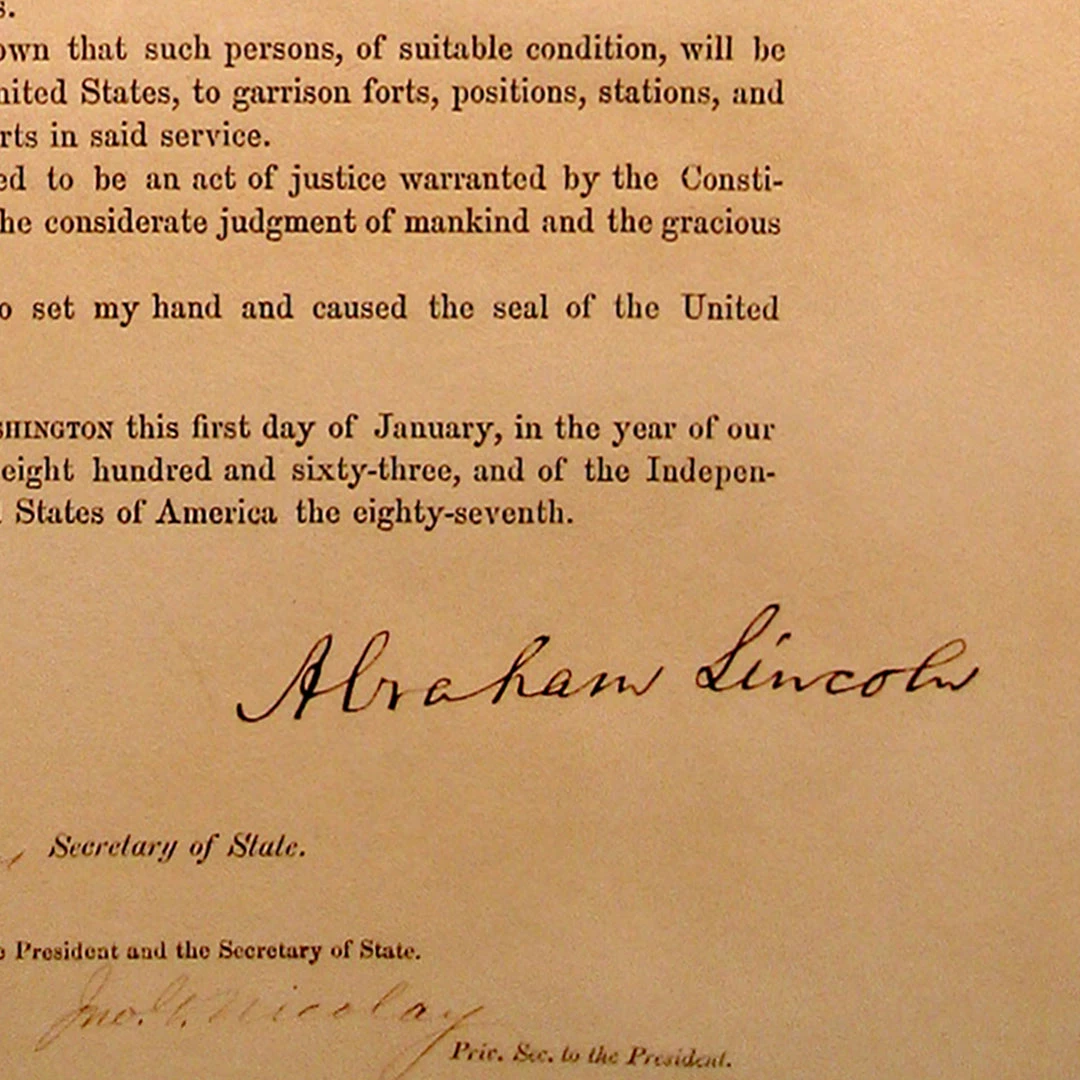 s.
own that such persons, of suitable condition, will be
nited States, to garrison forts, positions, stations, and
rts in said service.
ed to be an act of justice warranted by the Consti-
he considerate judgment of mankind and the gracious
o set my hand and caused the seal of the United
SHINGTON this first day of January, in the year of our
eight hundred and sixty-three, and of the Indepen-
States of America the eighty-seventh.
Abraham Lincoln
Secretary of State.
e President and the Secretary of State.
Jno. G. Nicolay
Priv. Sec. to the President.